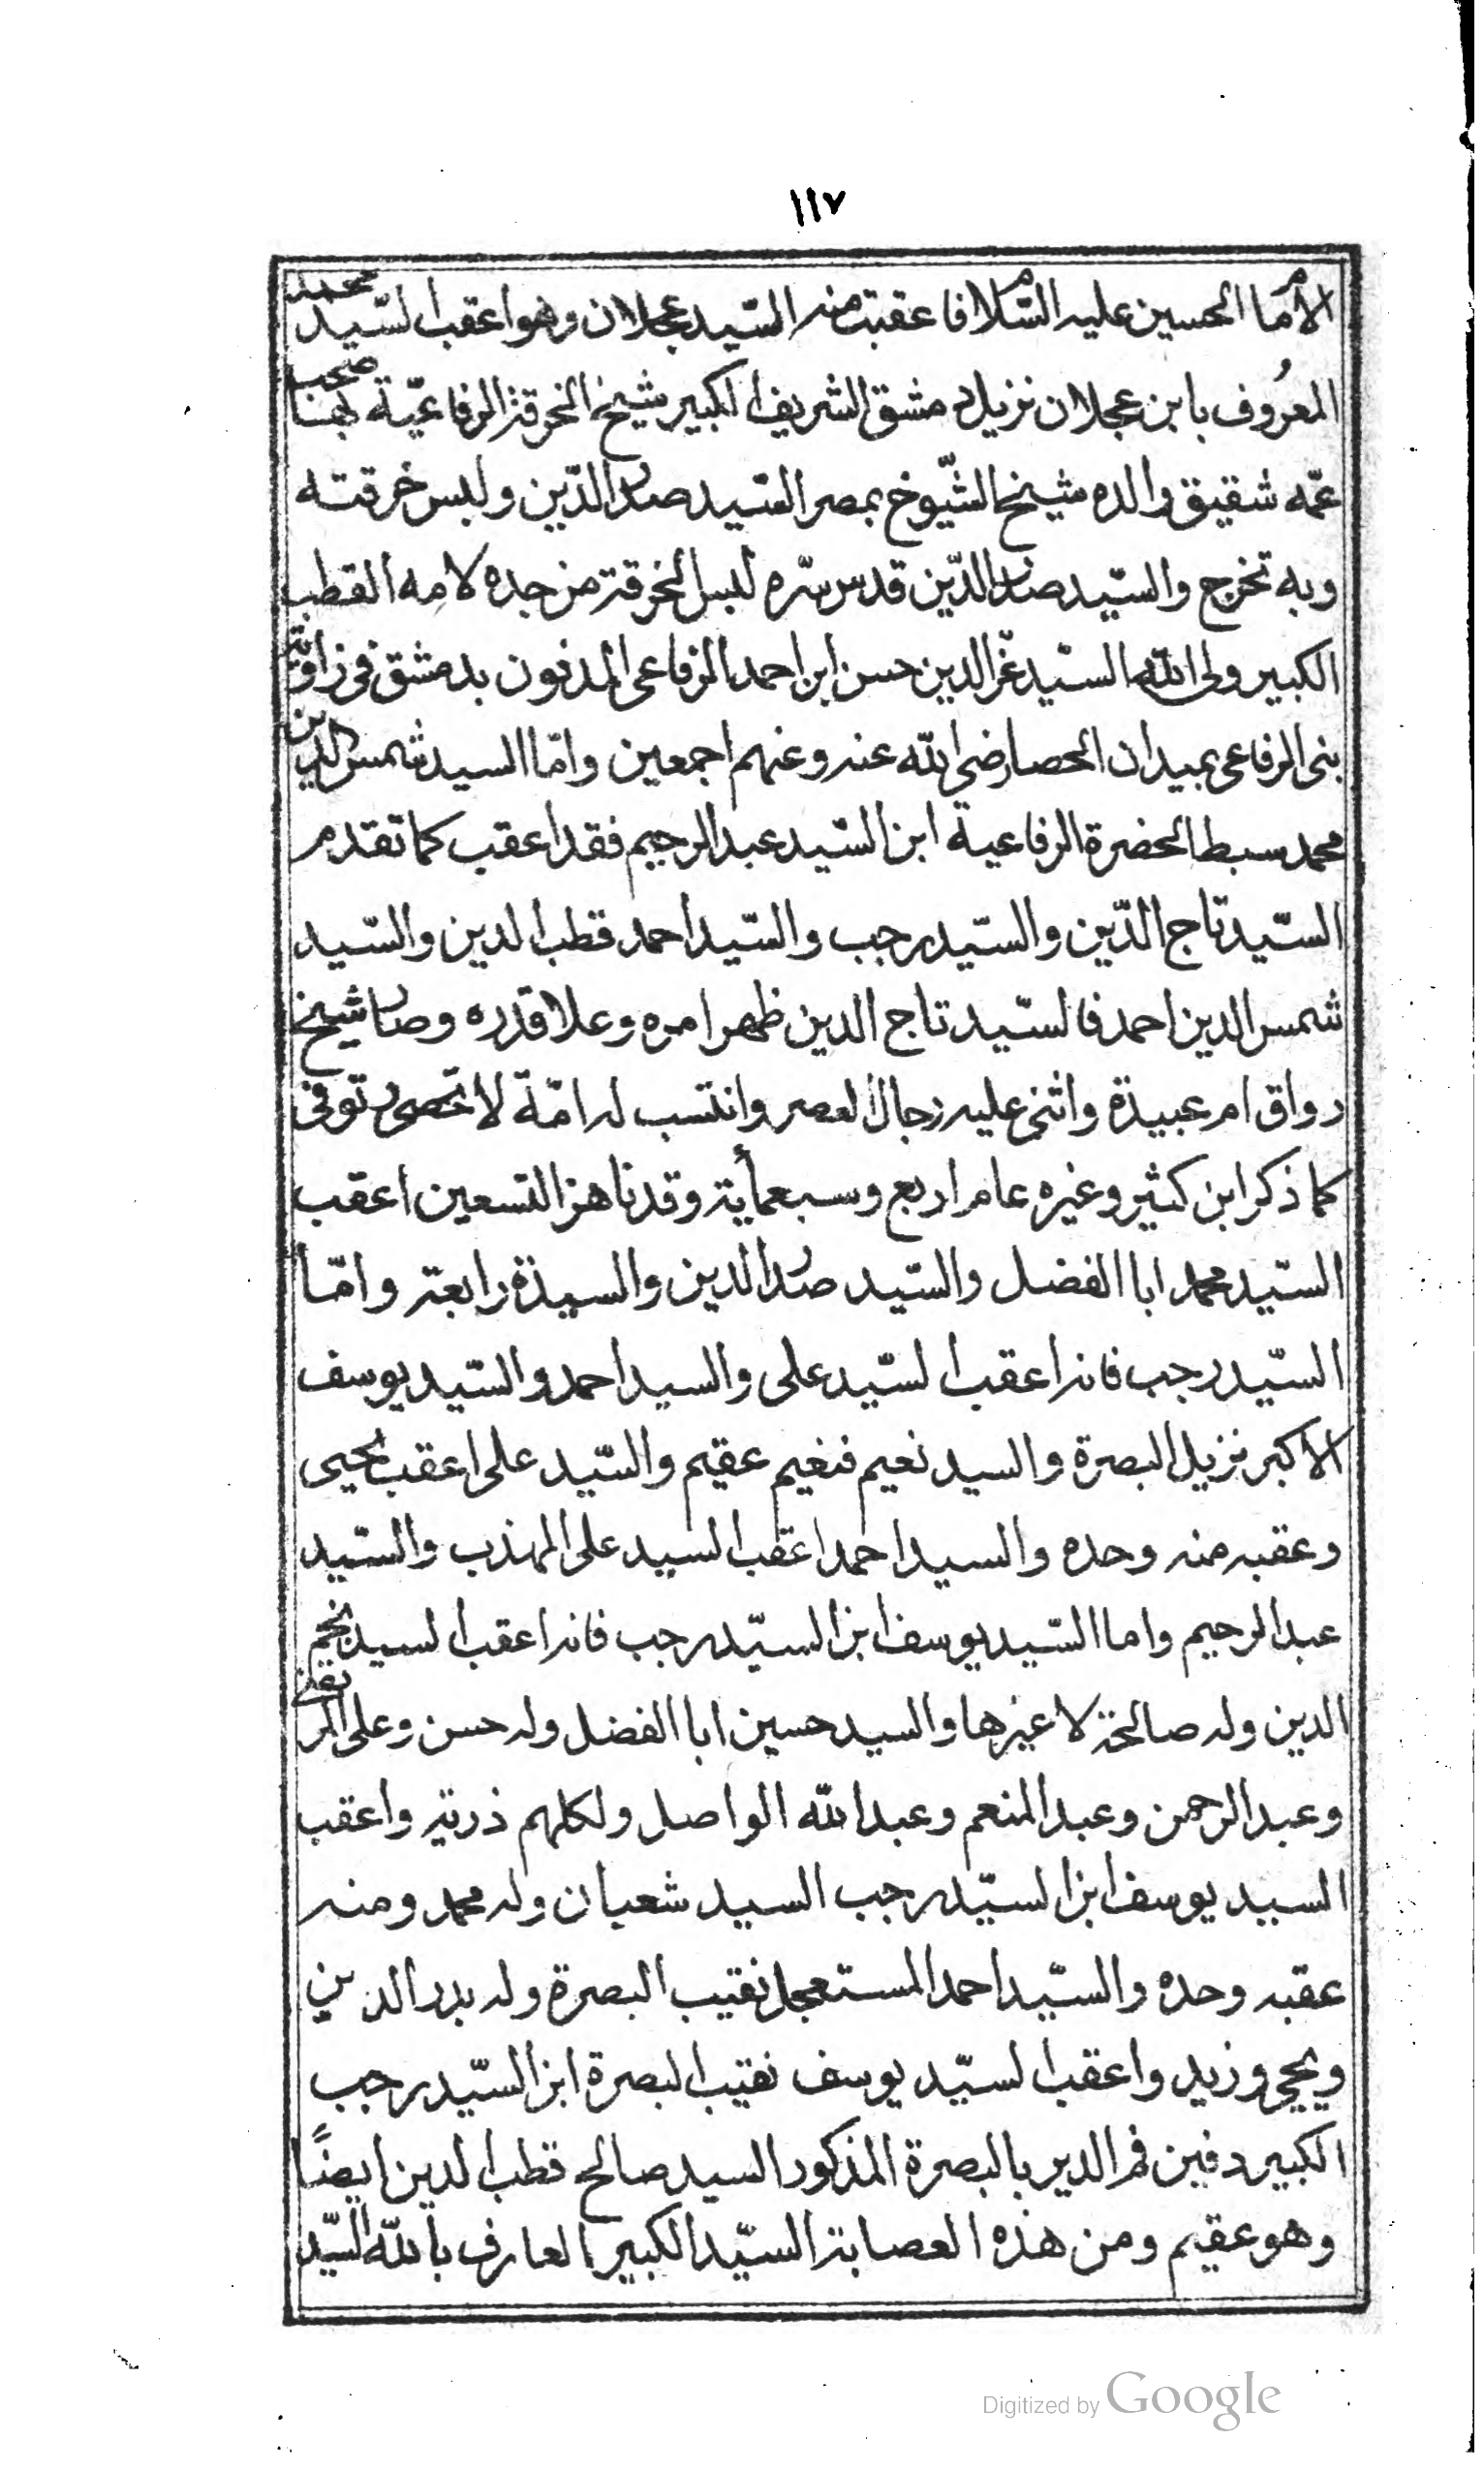 ١١٧
الامام الحسين عليه السلام فاعقبت منه السّيد عجلان وهو اعقب السّيد محمد
المعرُوف بابن عجلان نزيل دمشق الشريف الكبير شيخ الخرقة الرفاعيّة بهمنا صحب
عمّه شقيق والده شيخ الشّيوخ بمصر السّيد صدر الدّين ولبس خرقته
وبه تخرج والسّيد صدر الدّين قدس سّره لبس الخرقة من جده لامه القطب
الكبير ولى الله السّيد عزّ الدين حسن ابن احمد الرفاعى المدفون بدمشق فى زاوية
بنى الرفاعى بميدان الحصا رضى الله عنه وعنهم اجمعين وامّا السيد شمس الدين
محمد سبط الحضرة الرفاعية ابن السّيد عبد الرحيم فقد اعقب كما تقدم
السّيد تاج الدّين والسّيد رجب والسّيد احمد قطب الدين والسّيد
شمس الدين احمد فالسّيد تاج الدين ظهر امره وعلا قدره وصار شيخ
رواق ام عبيدة واثنى عليه رجال العصر وانتسب له امّة لا تحصى توفى
كما ذكر ابن كثير وغيره عام اربع وسبعمأية وقد ناهز التسعين اعقب
السّيد محمد ابا الفضل والسّيد صدر الدين والسيدة رابعة وامّا
السّيد رجب فانه اعقب السّيد على والسيد احمد والسّيد يوسف
الاكبر نزيل البصرة والسيد نعيم فنعيم عقيم والسّيد على اعقب يحيى
وعقبه منه وحده والسيد احمد اعقب السيد على المهذب والسّيد
عبد الرحيم واما السّيد يوسف ابن السّيد رجب فانه اعقب السيد نجم
الدين وله صالحة لا غيرها والسيد حسين ابا الفضل وله حسن وعلى المرتقى
وعبد الرحمن وعبد المنعم وعبد الله الواصل ولكلهم ذرية واعقب
السيد يوسف ابن السّيد رجب السيد شعبان وله محمد ومنه
عقبه وحده والسّيد احمد المستعجل نقيب البصرة وله بدر الدين
ويحيى وزيد واعقب السّيد يوسف نقيب البصرة ابن السّيد رجب
الكبير دفين فم الدير بالبصرة المذكور السيد صالح قطب الدين ايضًا
وهو عقيم ومن هذه العصابة السّيد الكبير العارف بالله السّيد
Digitized by Google